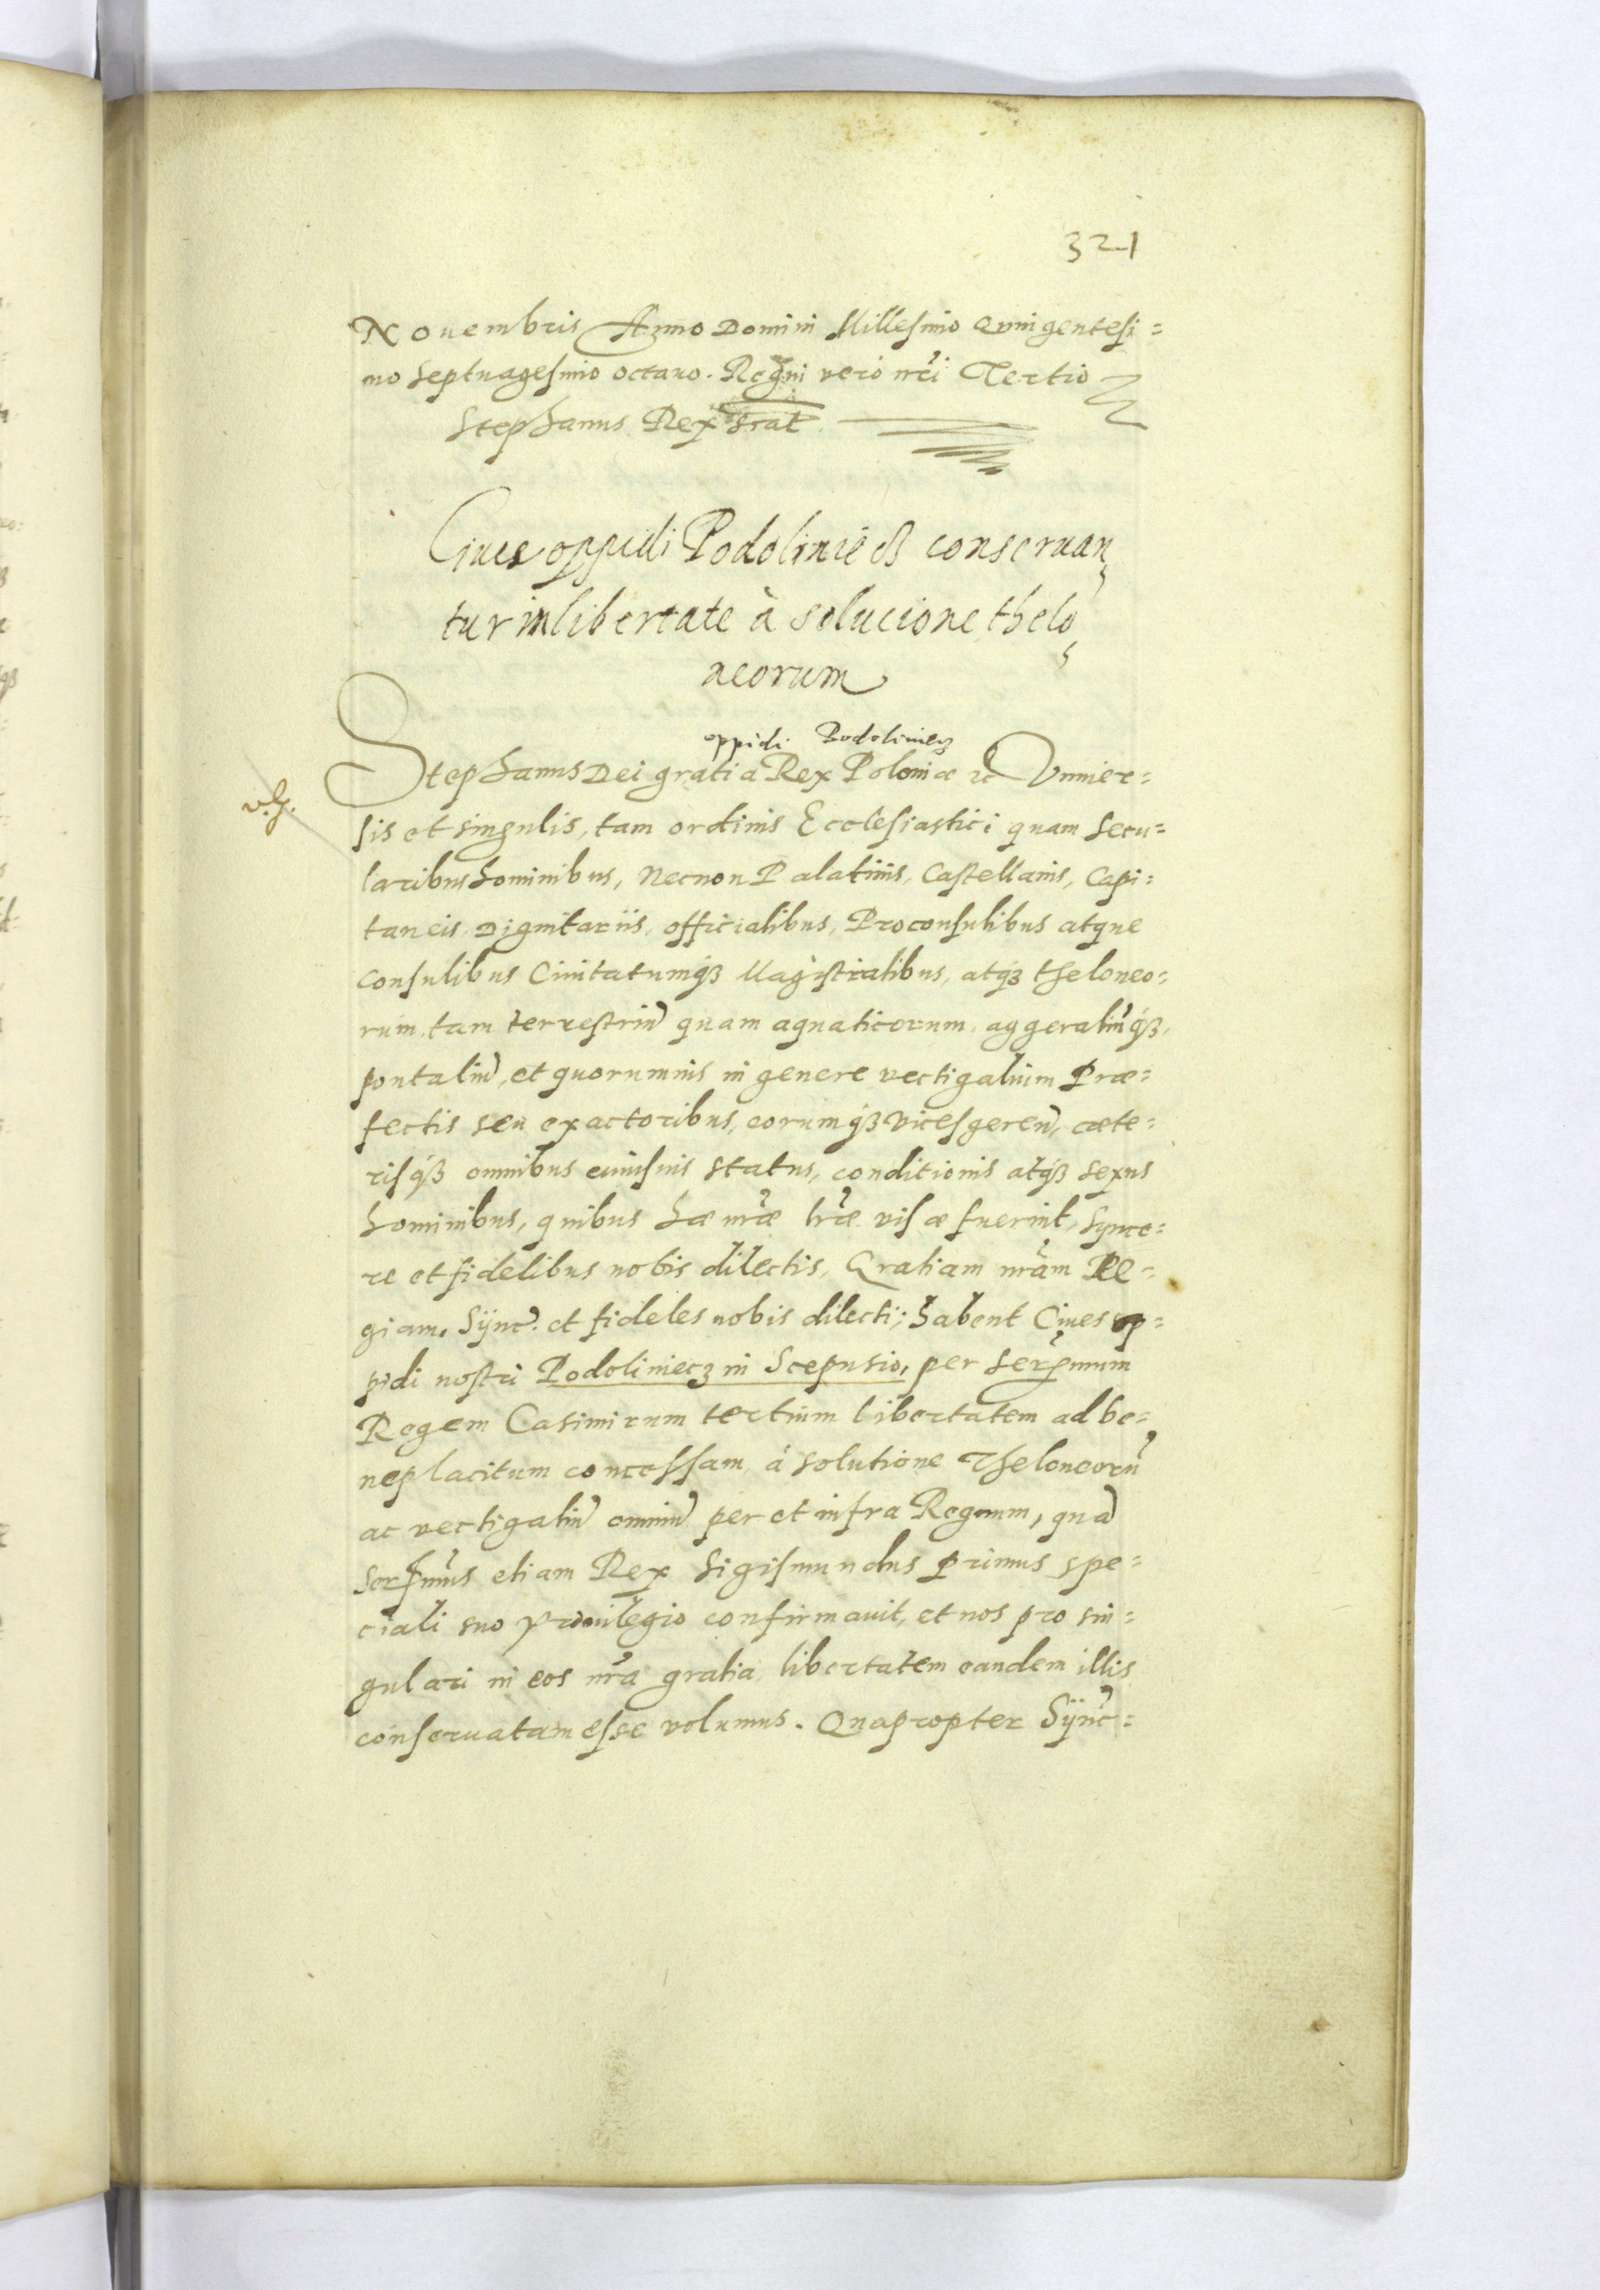 321
Nouembris Anno Domini Millesimo Quingentesi=
mo Septuagesimo octauo. Regni vero nr̃i Tertio
Stephanus Rex sĩat
Ciues oppidi Podolinieß conseruan
tur in libertate à solucione thelo
neorum
oppidi Podoliniecz
Stephanus Dei gratia Rex Poloniæ &c Vniuer=
v. g.
sis et singulis, tam ordinis Ecclesiastici quam Secu=
laribus hominibus, necnon Palatinis, Castellanis, Capi=
taneis, Dignitariis, officialibus, Proconsulibus atque
Consulibus Ciuitatumq́ꝫ Magistratibus, atq́ꝫ theloneo=
rum, tam terrestriũ quam aquaticorum, aggeraliũq́ꝫ,
pontaliũ, et quorumuis in genere vectigalium Præ=
fectis seu exactoribus, eorumq́ꝫ vices gereñ, cæte=
risq́ꝫ omnibus cuiusuis status, conditionis atq́ꝫ sexus
hominibus, quibus hæ nr̃æ lr̃æ visæ fuerint, Synce=
re et fidelibus nobis dilectis, Gratiam nr̃am Re=
giam. Sÿnc̃. et fideles nobis dilecti; habent Ciues op=
pidi nostri Podoliniecz in Scepusio, per Ser̃mum
Regem Casimirum tertium libertatem ad be=
neplacitum concessam, à solutione Theloneorũ
ac vectigaliũ omniũ per et infra Regnum, quã
Ser̃mus etiam Rex Sigismundus Primus spe=
ciali suo priuilegio confirmauit, et nos pro sin=
gulari in eos nr̃a gratia, libertatem eandem illis
conseruatam esse volumus. Quapropter Sÿnc̃=